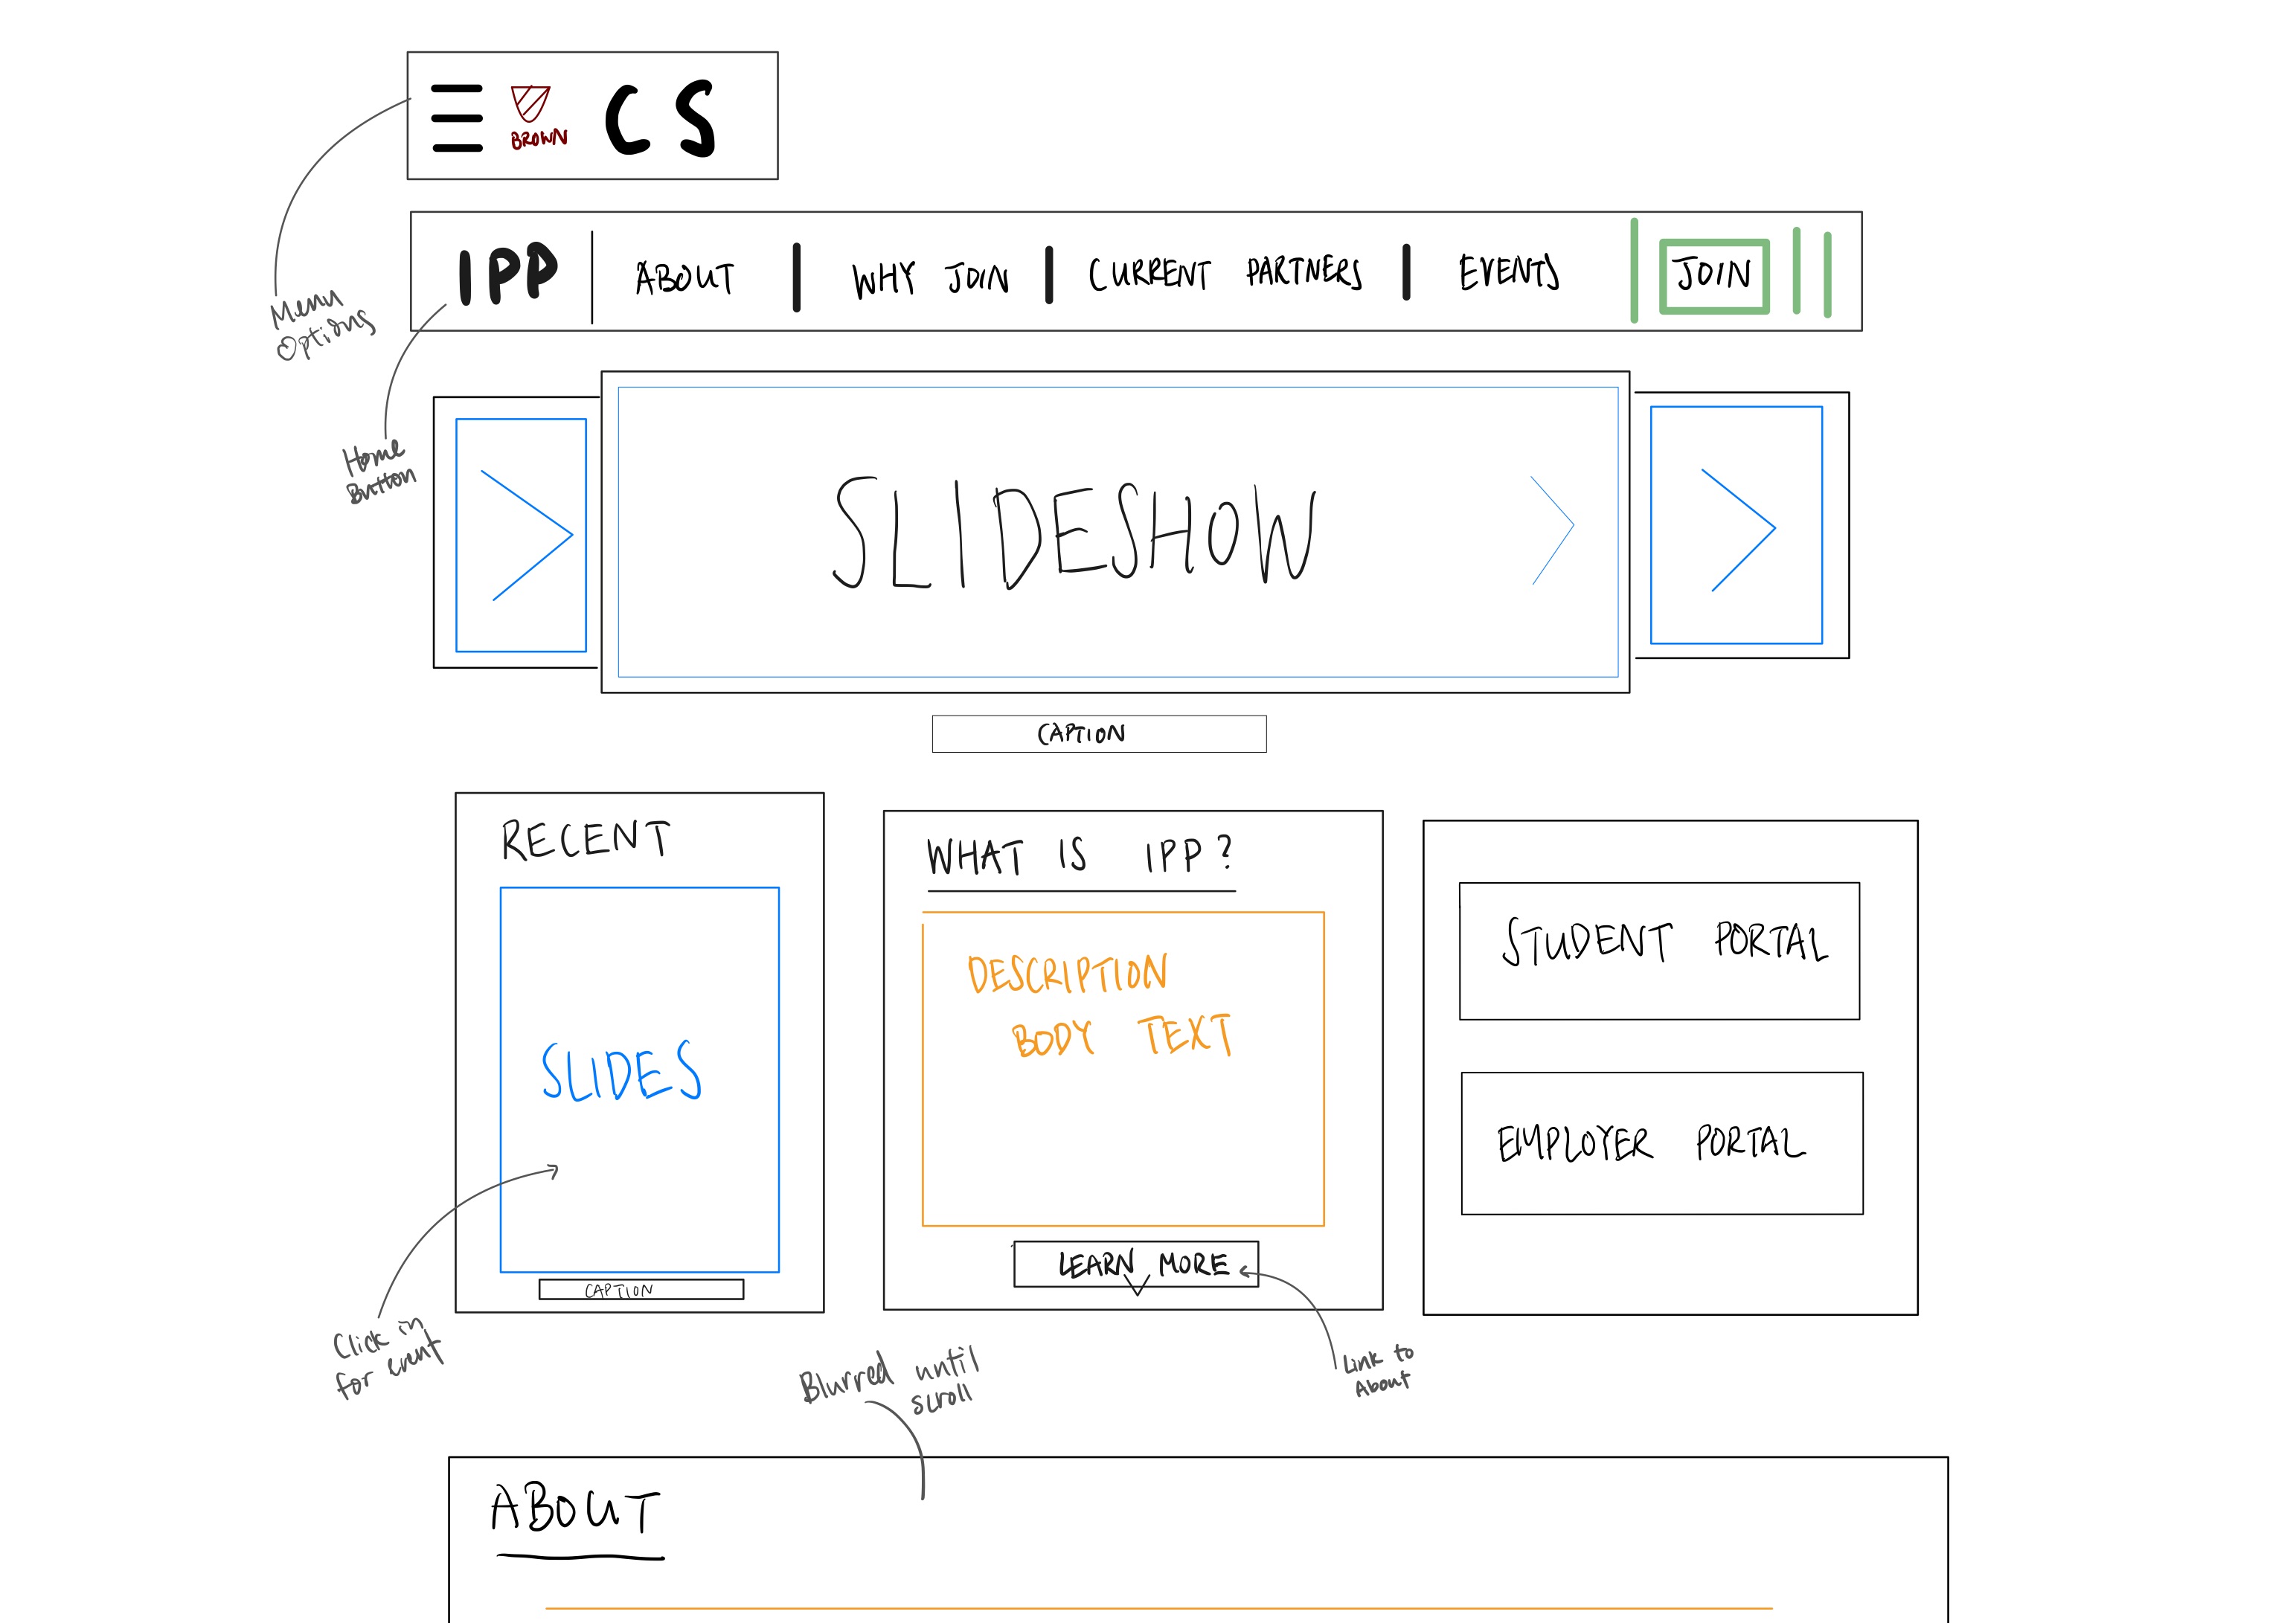 BROWN
CS
IPP
ABOUT
WHY JOIN
CURRENT PARTNERS
EVENTS
JOIN
Menu
Options
Home
Button
SLIDESHOW
CAPTION
RECENT
SLIDES
CAPTION
Click in
for event
WHAT IS IPP?
DESCRIPTION
BODY TEXT
LEARN MORE
Link to
About
STUDENT PORTAL
EMPLOYER PORTAL
Blurred until
scroll
ABOUT